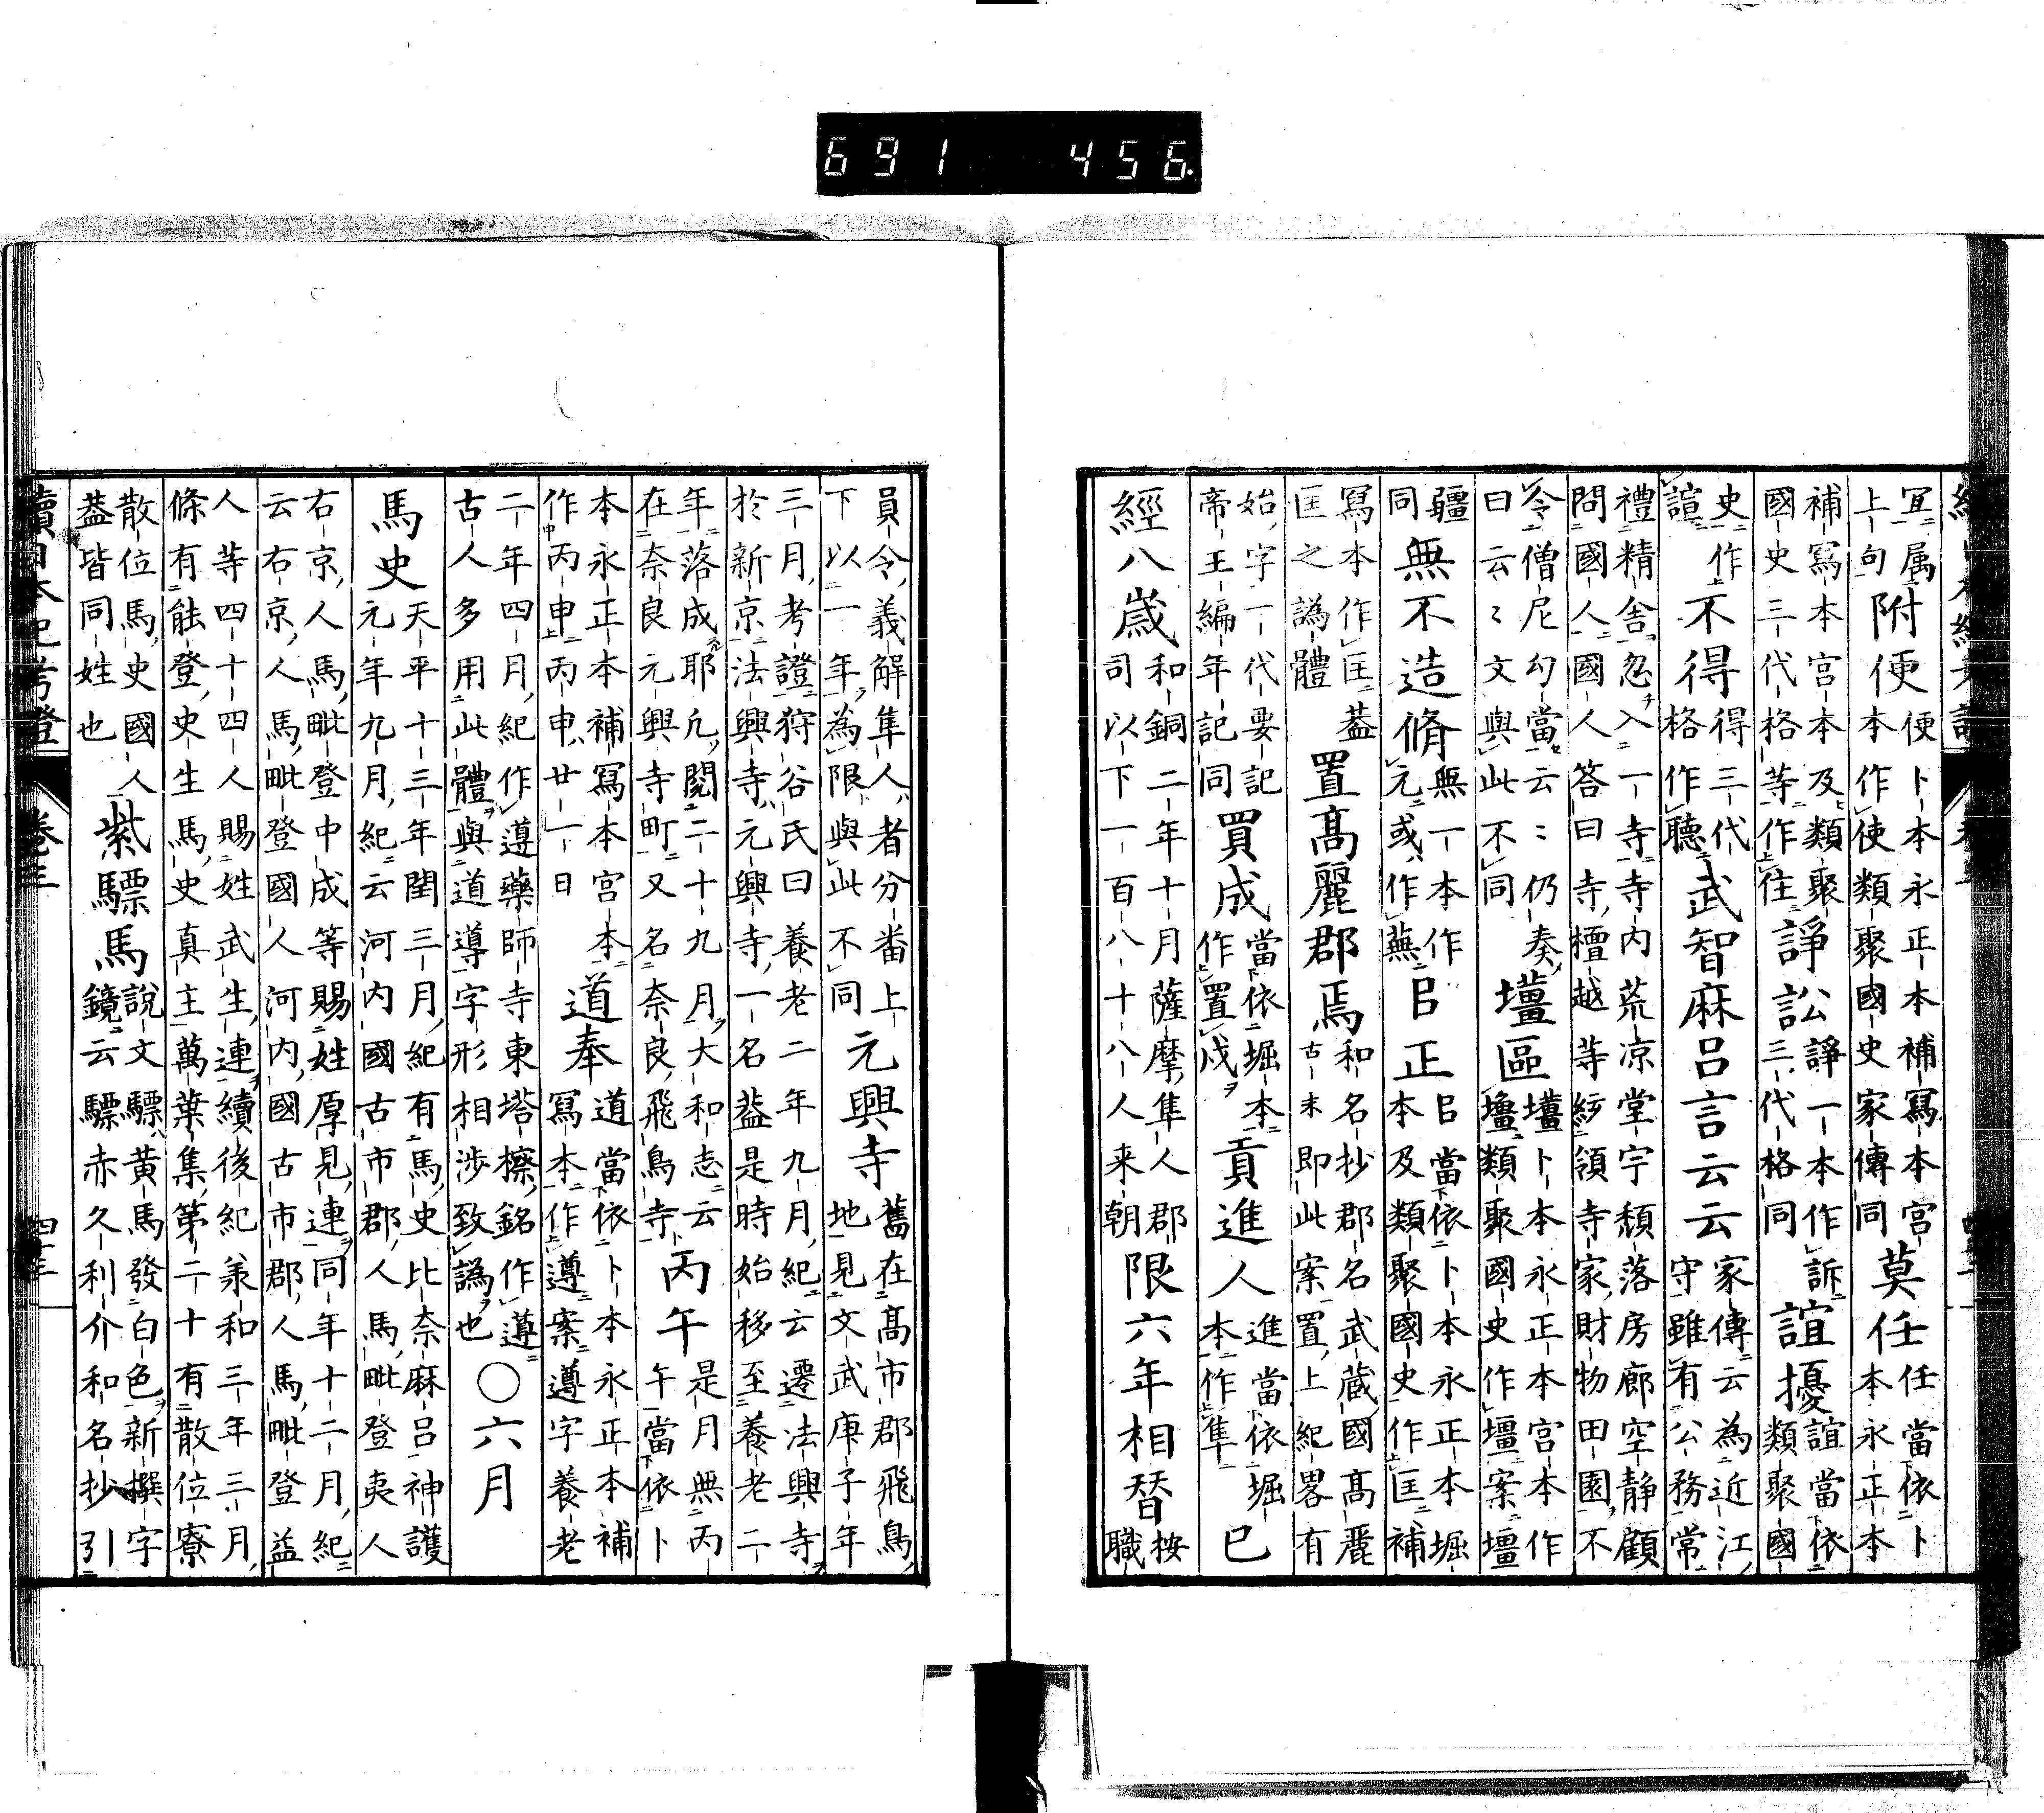 冝属上句附便便卜本永正本補冩本宮本作使類聚國史家傳同莫任任當依卜本永正本
補冩本宮本及類聚國史三代格等作往諍訟諍一本作訴三代格同誼擾誼當依類聚國
史作諠不得得三代格作聽武智麻呂言云云家傳云為近江守雖有公務常
禮精舎忽入一寺寺内荒凉堂宇頽落房廊空静顧問國人國人答曰寺檀越等綂領寺家財物田園不
令僧尼勾當云〻仍奏曰云〻文與此不同壃區壃卜本永正本宮本作壃類聚國史作壃案壃
疆同無不造脩無一本作元或作蕪㠯正㠯當依卜本永正本堀本及類聚國史作匡補
冩本作匡葢匡之譌體置髙麗郡焉和名抄郡名武蔵國髙麗古末即此案置上紀畧有
始字一代要記帝王編年記同買成當依堀本作置戍貢進人進當依堀本作隼已
經八歳和銅二年十月薩摩隼人郡司以下一百八十八人来朝限六年相替按職
員令義解隼人者分番上下以一年為限與此不同元興寺舊在髙市郡飛鳥地見文武庚子年
三月考證狩谷氏曰養老二年九月紀云遷法興寺於新京法興寺元興寺一名葢是時始移至養老二
年落成耶凢閲二十九月大和志云在奈良元興寺町又名奈良飛鳥寺丙午是月無丙午當依卜
本永正本補冩本宮本作丙申丙申廿一日道奉道當依卜本永正本補冩本作遵案遵字養老
二年四月紀作遵藥師寺東塔擦銘作遵古人多用此體與道導字形相渉致譌也○六月
馬史天平十三年閏三月紀有馬史比奈麻呂神護元年九月紀云河内國古市郡人馬毗登夷人
右京人馬毗登中成等賜姓厚見連同年十二月紀云右京人馬毗登國人河内國古市郡人馬毗登益
人等四十四人賜姓武生連續後紀羕和三年三月條有能登史生馬史真主萬葉集第二十有散位寮
散位馬史國人葢皆同姓也紫驃馬說文驃黄馬發白色新撰字鏡云驃赤久利介和名抄引
續日本紀考證 卷三 四十三